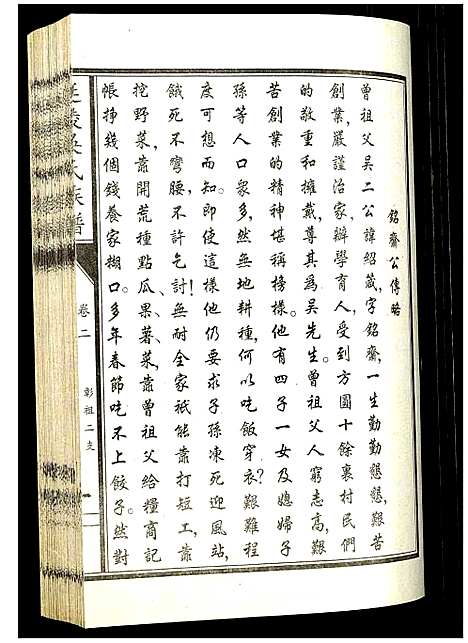 銘齋公傳略
曾祖父吴二公諱紹箴字銘齋，一生勤勤懇懇，艱苦
創業，嚴謹治家，辦學育人，受到方圓十餘裏村民們
的敬重和擁戴，尊其爲吴先生。曾祖父人窮志高，艱
苦創業的精神堪稱榜樣。他有四子一女及媳婦子
孫等人口衆多，然無地耕種，何以吃飯穿衣？艱難程
度可想而知。即使這樣他仍要求子孫凍死迎風站，
餓死不彎腰，不許乞討！無耐全家祇能靠打短工，靠
挖野菜，靠開荒種點瓜、果、薯、菜，靠曾祖父给糧商記
帳挣幾個錢養家糊口。多年春節吃不上餃子。然對
延陵吴氏族譜
卷二
彰祖二支